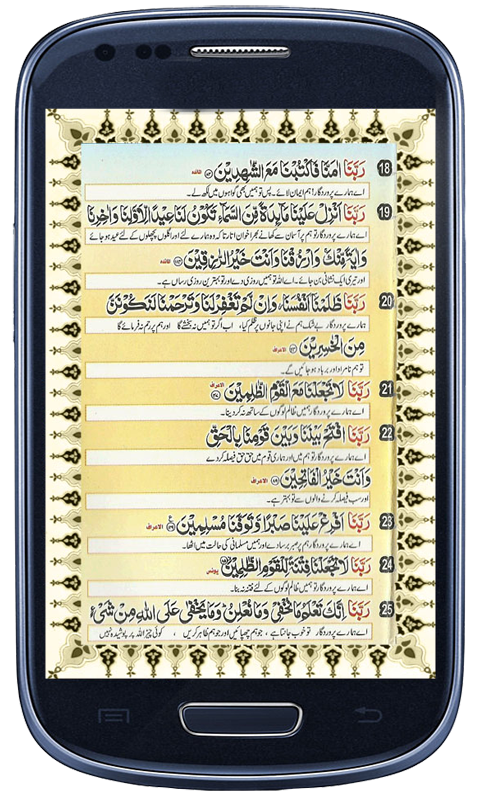 18 رَبَّنَا اٰمَنَّا فَاكْتُبْنَا مَعَ الشّٰهِدِيْنَ المائدہ
اے ہمارے پروردگار! ہم ایمان لائے۔ پس تو ہمیں بھی گواہوں میں لکھ لے۔
19 رَبَّنَا اَنْزِلْ عَلَيْنَا مَآئِدَةً مِّنَ السَّمَآءِ تَكُوْنُ لَنَا عِيْدًا لِّاَوَّلِنَا وَاٰخِرِنَا
اے ہمارے پروردگار تو ہم پر آسمان سے کھانے بھرا خوان اتار تاکہ وہ ہمارے لئے اور اگلوں پچھلوں کے لئے عید ہو جائے
وَاٰيَةً مِّنْكَ وَارْزُقْنَا وَاَنْتَ خَيْرُ الرّٰزِقِيْنَ المائدہ
اور تیری ایک نشانی بن جائے۔ اے اللہ تو ہمیں روزی دے اور تو بہترین روزی رساں ہے۔
20 رَبَّنَا ظَلَمْنَا اَنْفُسَنَا وَاِنْ لَّمْ تَغْفِرْ لَنَا وَتَرْحَمْنَا لَنَكُوْنَنَّ
ہمارے پروردگار بے شک ہم نے اپنی جانوں پر ظلم کیا، اب اگر تو ہمیں نہ بخشے گا اور ہم پر رحم نہ فرمائے گا
مِنَ الْخٰسِرِيْنَ الاعراف
تو ہم نامراد اور برباد ہو جائیں گے۔
21 رَبَّنَا لَا تَجْعَلْنَا مَعَ الْقَوْمِ الظّٰلِمِيْنَ الاعراف
اے ہمارے پروردگار ہمیں ظالم لوگوں کے ساتھ نہ کر دینا۔
22 رَبَّنَا افْتَحْ بَيْنَنَا وَبَيْنَ قَوْمِنَا بِالْحَقِّ
اے ہمارے پروردگار تو ہم میں اور ہماری قوم میں حق حق فیصلہ کر دے
وَاَنْتَ خَيْرُ الْفَاتِحِيْنَ الاعراف
اور سب فیصلہ کرنے والوں سے تو بہتر ہے۔
23 رَبَّنَا اَفْرِغْ عَلَيْنَا صَبْرًا وَّتَوَفَّنَا مُسْلِمِيْنَ الاعراف
اے ہمارے پروردگار! ہم پر صبر برسا دے اور ہمیں مسلمانی کی حالت میں اٹھا۔
24 رَبَّنَا لَا تَجْعَلْنَا فِتْنَةً لِّلْقَوْمِ الظّٰلِمِيْنَ یونس
اے ہمارے پروردگار تو ہمیں ظالم لوگوں کے لئے فتنہ نہ بنا۔
25 رَبَّنَا اِنَّكَ تَعْلَمُ مَا نُخْفِيْ وَمَا نُعْلِنُ وَمَا يَخْفٰى عَلَى اللّٰهِ مِنْ شَيْءٍ
اے ہمارے پروردگار تو خوب جانتا ہے، جو ہم چھپائیں اور جو ہم ظاہر کریں، کوئی چیز اللہ پر پوشیدہ نہیں